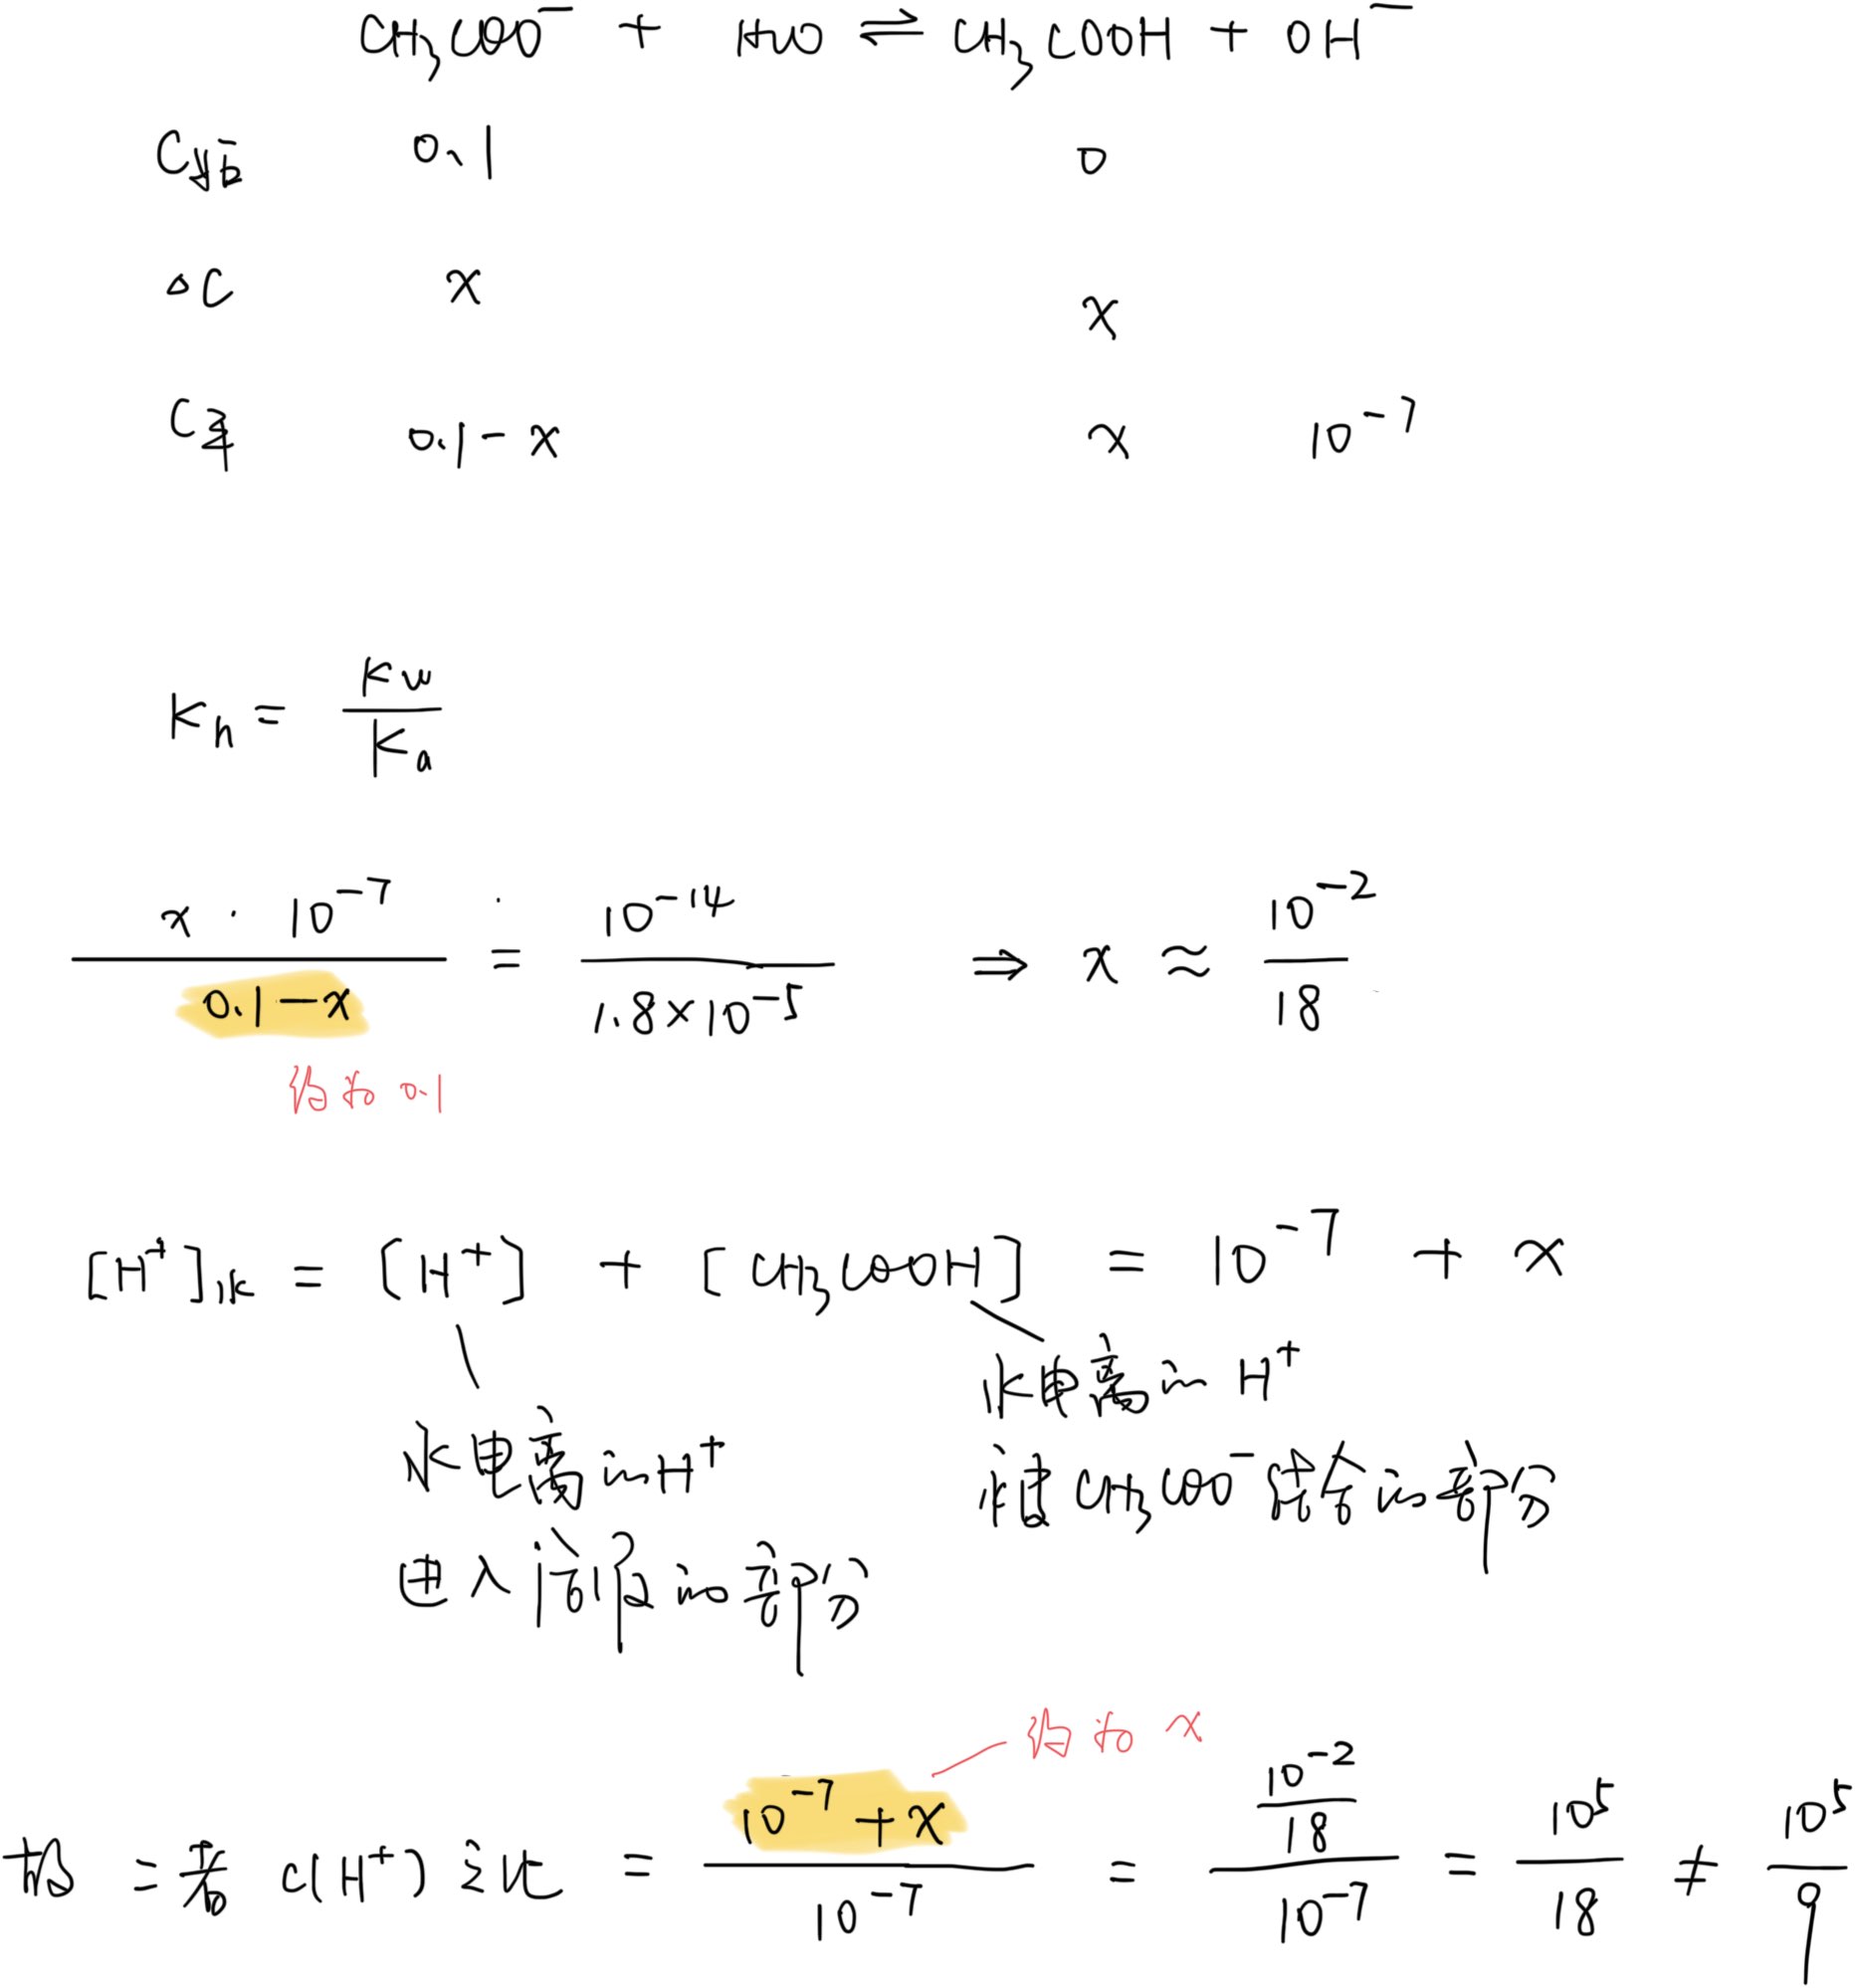 CH₃COO⁻ + H₂O ⇌ CH₃COOH + OH⁻
C始 0.1 0
△C x x
C平 0.1-x x 10⁻⁷
Kh = Kw/Ka
x · 10⁻⁷ / 0.1-x = 10⁻¹⁴ / 1.8×10⁻⁵ ⇒ x ≈ 10⁻²/18
约为 0.1
[H⁺]水 = [H⁺] + [CH₃COOH] = 10⁻⁷ + x
水电离的H⁺
进入溶液的部分
水电离的 H⁺
被CH₃COO⁻结合的部分
约为 x
故 二者 c(H⁺) 之比 = 10⁻⁷ + x / 10⁻⁷ = 10⁻²/18 / 10⁻⁷ = 10⁵/18 ≠ 10⁵/9